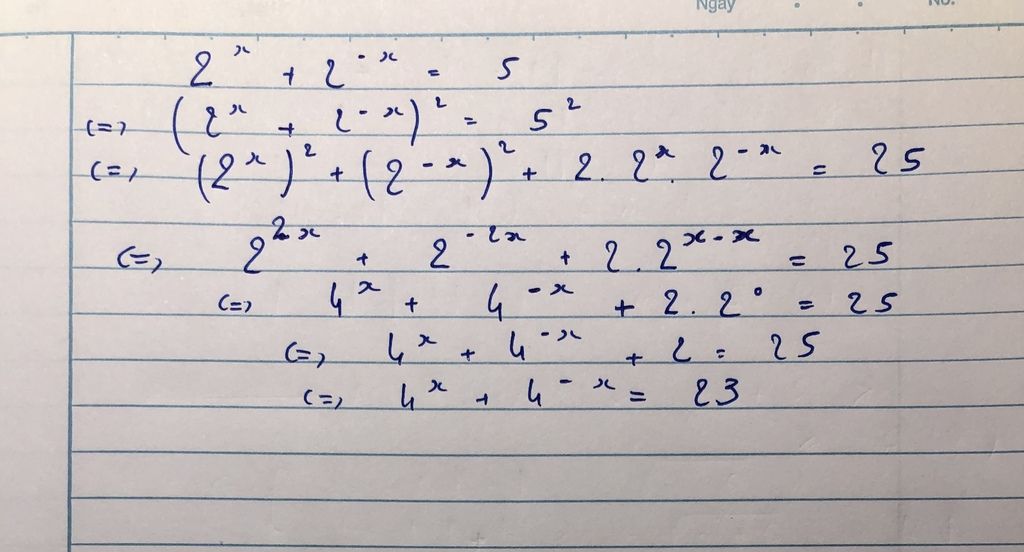 Ngày No.
2^x + 2^-x = 5
<=> (2^x + 2^-x)^2 = 5^2
<=> (2^x)^2 + (2^-x)^2 + 2. 2^x. 2^-x = 25
<=> 2^2x + 2^-2x + 2. 2^x-x = 25
<=> 4^x + 4^-x + 2. 2^0 = 25
<=> 4^x + 4^-x + 2 = 25
<=> 4^x + 4^-x = 23